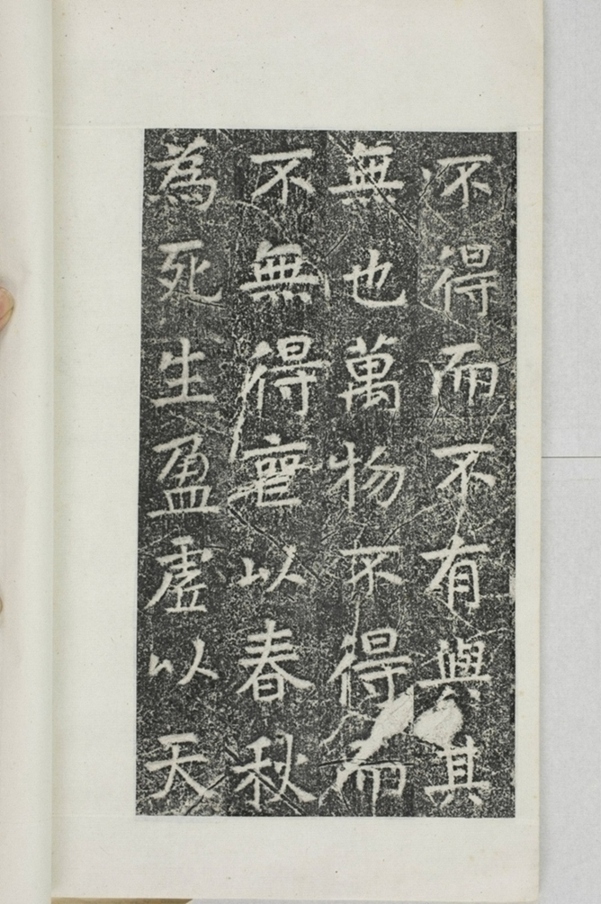 不得而不有與其
無也萬物不得而
不無得喪以春秋
為死生盈虛以天